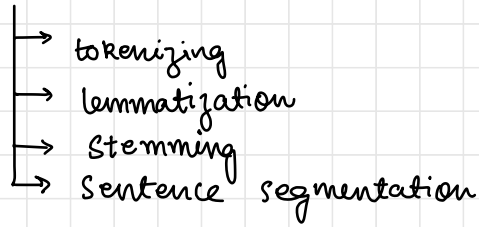 tokenizing
lemmatization
Stemming
Sentence segmentation